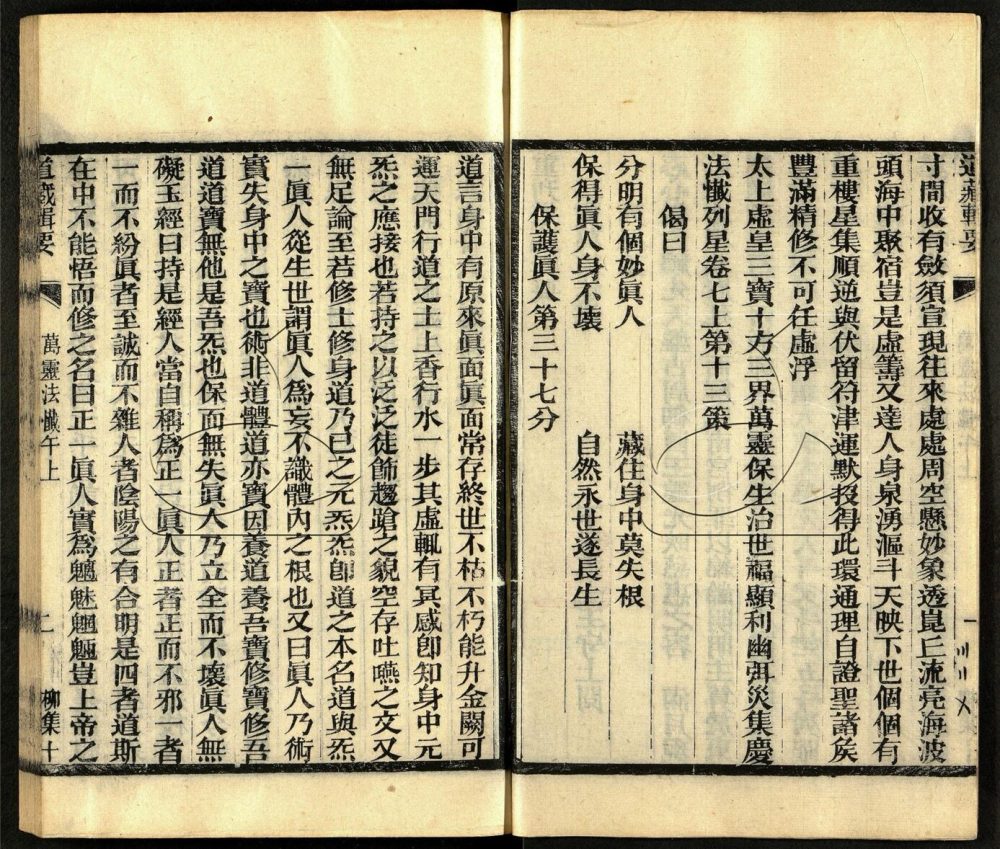 道藏輯要
寸間收有斂須宣現往來處處周空懸妙象透崑丘流亮海波
頭海中聚宿豈是虛籌又達人身泉湧漚斗天映下世個個有
重樓星集順逆與伏留符津運默投得此環通理自證聖諸矦
豐滿精修不可任虛浮
太上虛皇三寶十方三界萬靈保生治世福顯利幽弭災集慶
法懺列星卷七上第十三策
偈曰
分明有個妙眞人 藏住身中莫失根
保得眞人身不壞 自然永世遂長生
保護眞人第三十七分
道言身中有原來眞面眞面常存終世不枯不朽能升金闕可
運天門行道之士上香行水一步其虛輒有冥感卽知身中元
炁之應接也若持之以泛泛徒飾趨蹌之貌空存吐嚥之文又
無足論至若修士修身道乃已之元炁炁卽道之本名道與炁
一眞人從生世謂眞人爲妄不識體內之根也又曰眞人乃術
實失身中之寶也術非道體道亦寶因養道養吾寶修寶修吾
道道寶無他是吾炁也保而無失眞人乃立全而不壞眞人無
礙玉經曰持是經人當自稱爲正一眞人正者正而不邪一者
一而不紛眞者至誠而不雜人者陰陽之有合明是四者道斯
在中不能悟而修之名曰正一眞人實爲魑魅魍魎豈上帝之
道藏輯要 萬靈法懺午上 二 柳集十